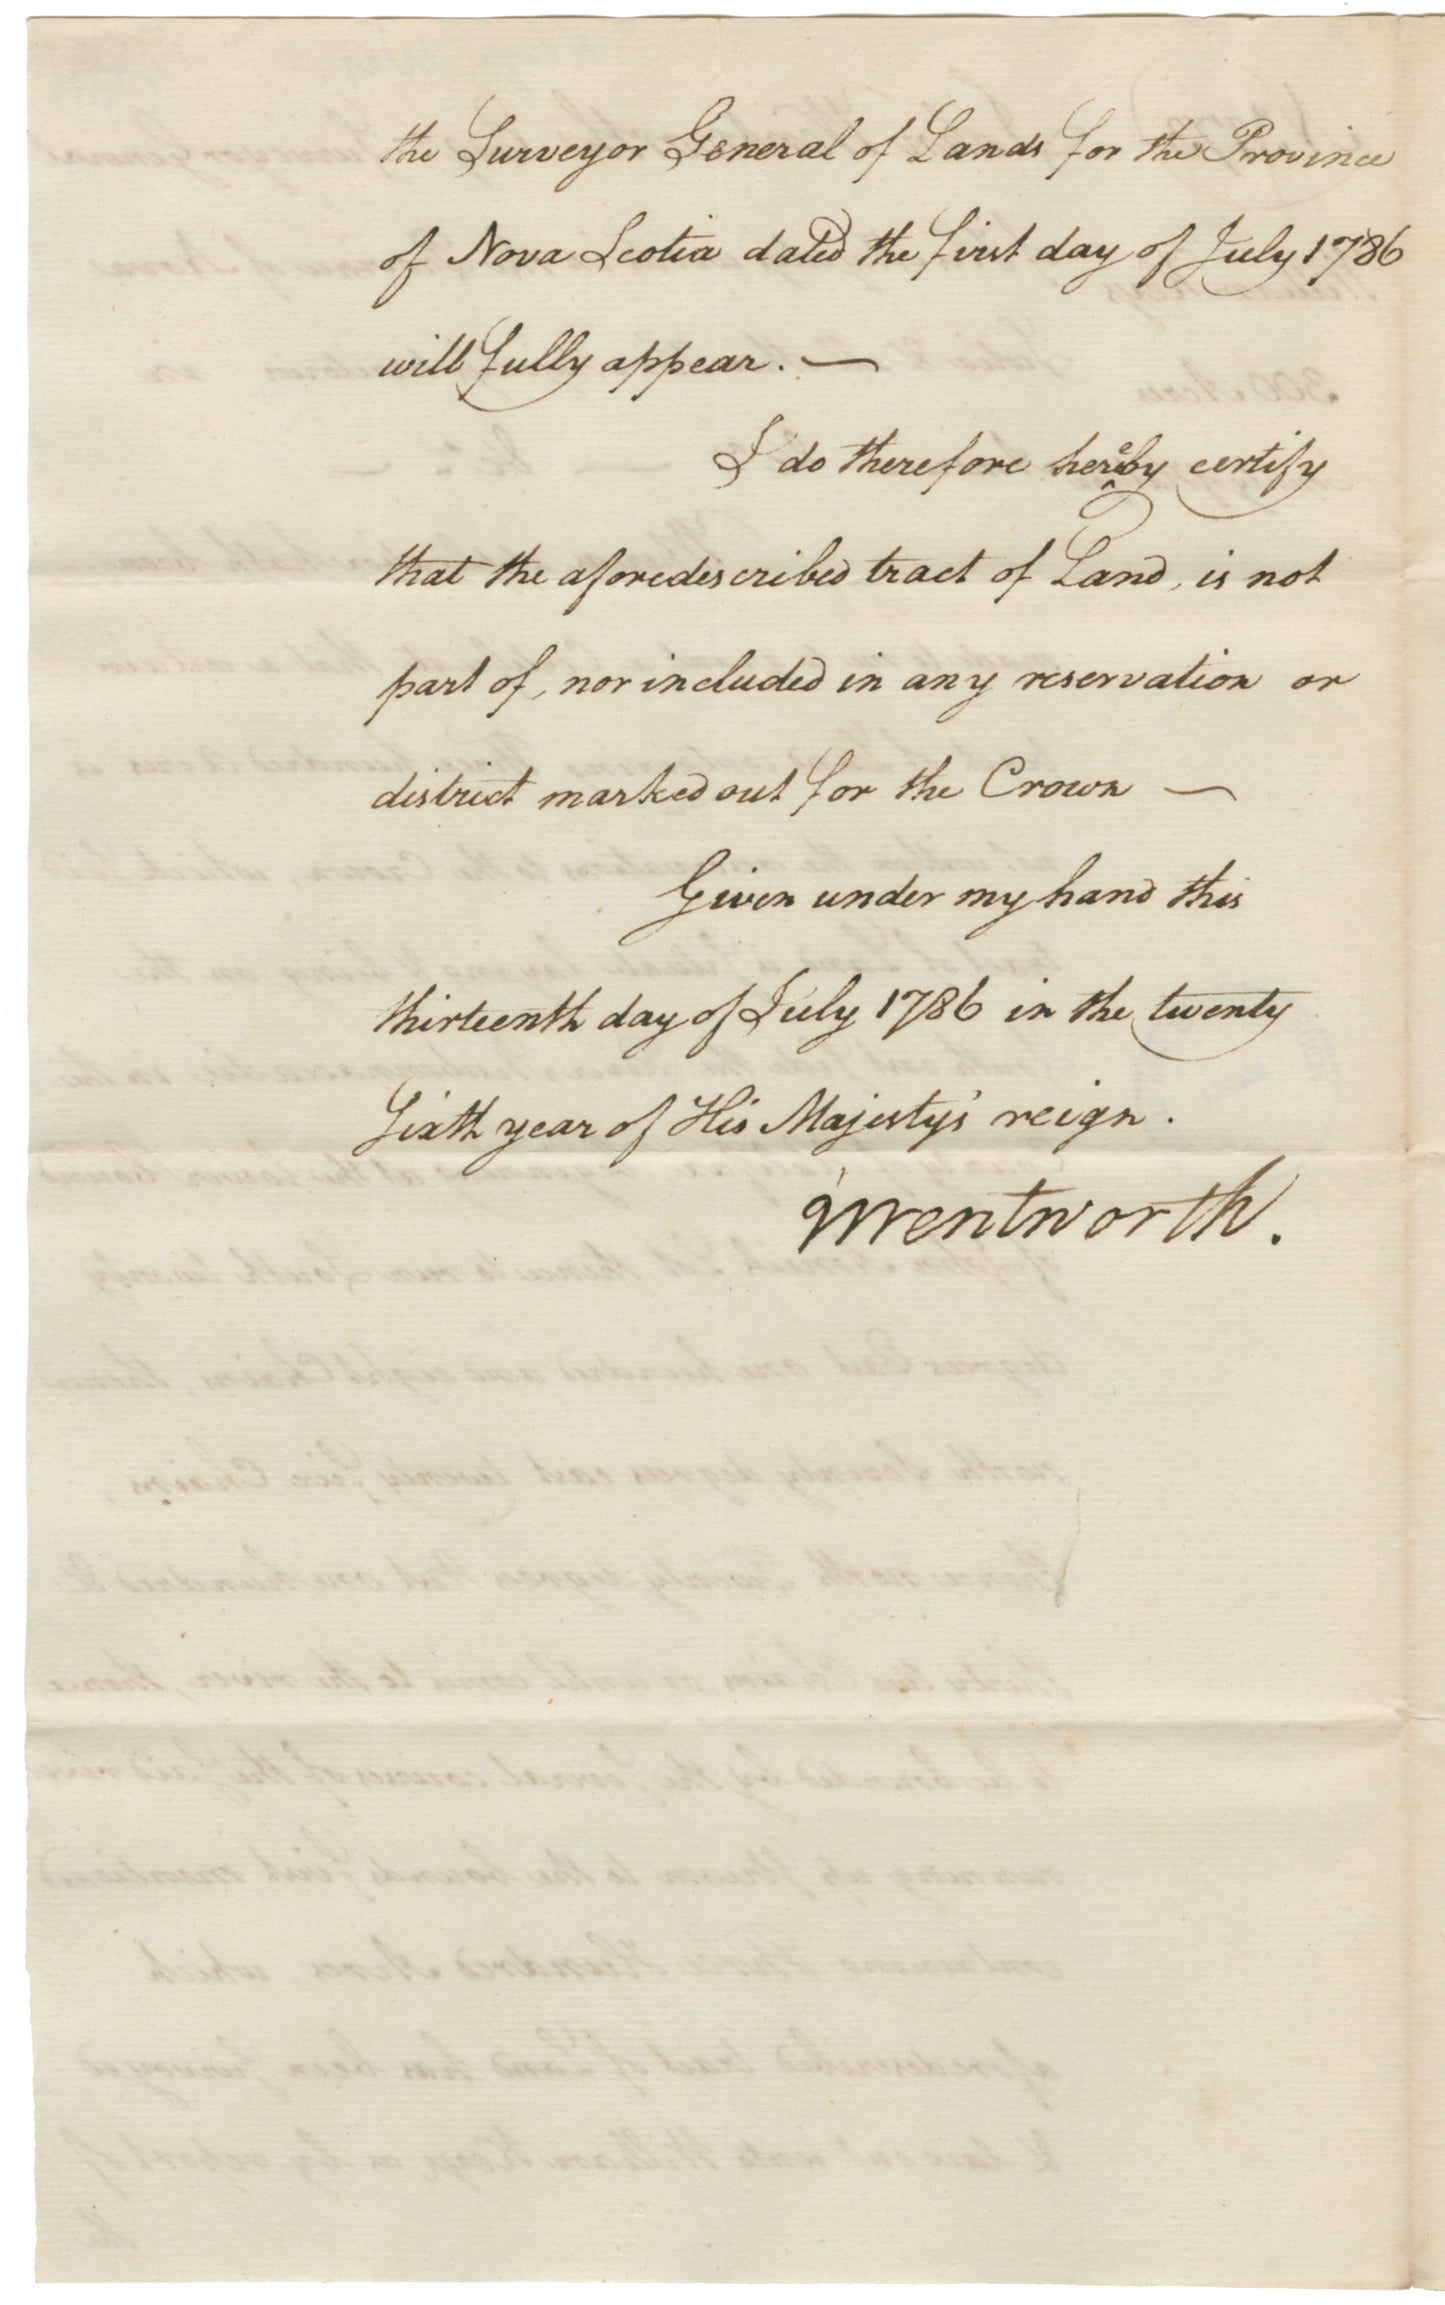 the Surveyor General of Lands for the Province
of Nova Scotia dated the first day of July 1786
will fully appear. —
I do therefore hereby certify
that the aforedescribed tract of Land, is not
part of, nor included in any reservation or
district marked out for the Crown —
Given under my hand this
thirteenth day of July 1786 in the twenty
Sixth year of His Majesty's reign.
Wentworth.